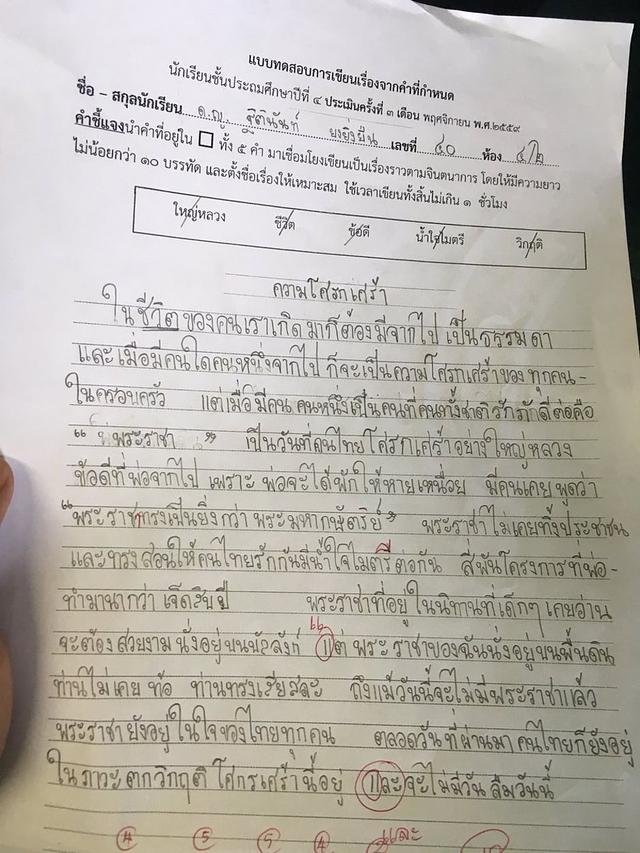 แบบทดสอบการเขียนเรื่องจากคำที่กำหนด
นักเรียนชั้นประถมศึกษาปีที่ ๔ ประเมินครั้งที่ ๓ เดือน พฤศจิกายน พ.ศ.๒๕๕๙
ชื่อ – สกุลนักเรียน ด.ญ. ฐิตินันท์ ยงยิ่งยืน เลขที่ ๔๐ ห้อง ๔/๒
คำชี้แจงนำคำที่อยู่ใน ทั้ง ๕ คำ มาเชื่อมโยงเขียนเป็นเรื่องราวตามจินตนาการ โดยให้มีความยาว
ไม่น้อยกว่า ๑๐ บรรทัด และตั้งชื่อเรื่องให้เหมาะสม ใช้เวลาเขียนทั้งสิ้นไม่เกิน ๑ ชั่วโมง
ใหญ่หลวง ชีวิต ข้อดี น้ำใจไมตรี วิกฤติ
ความโศรกเศร้า
ในชีวิตของคนเราเกิดมาก็ต้องมีจากไป เป็นธรรมดา
และเมื่อมีคนใดคนหนึ่งจากไป ก็จะเป็นความโศรกเศร้าของทุกคน-
ในครอบครัว แต่เมื่อมีคนคนหนึ่งเป็นคนที่คนทั้งชาติรักภักดีต่อคือ
“ พระราชา ” เป็นวันที่คนไทยโศรกเศร้าอย่างใหญ่หลวง
ข้อดีที่พ่อจากไป เพราะ พ่อจะได้พักให้หายเหนื่อย มีคนเคยพูดว่า
“พระราชาทรงเป็นยิ่งกว่า พระมหากษัตริย์” พระราชาไม่เคยทิ้งประชาชน
และทรงสอนให้คนไทยรักกันมีน้ำใจไมตรีต่อกัน สี่พันโครงการที่พ่อ-
ทำมานากว่า เจ็ดสิบปี พระราชาที่อยู่ในนิทานที่เด็กๆ เคยอ่าน
จะต้องสวยงาม นั่งอยู่บนบัลลังก์ แต่ พระราชาของฉันนั่งอยู่บนพื้นดิน
ท่านไม่เคย ท้อ ท่านทรงเสียสละ ถึงแม้วันนี้จะไม่มีพระราชาแล้ว
พระราชายังอยู่ในใจของไทยทุกคน ตลอดวันที่ผ่านมา คนไทยก็ยังอยู่
ในภาวะตกวิกฤติ โศกรเศร้านี้อยู่ และจะไม่มีวัน ลืมวันนี้
4 5 5 4
และ